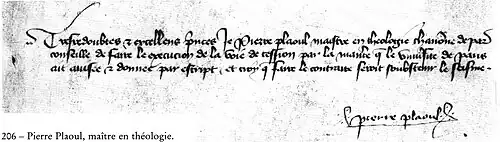 Tresredoubtes & excellens princes Je Pierre plaoul maistre en theologie chanoine de par
conseille de faire lexecucion de la voie de cession par la maniere que luniversite de paris
ait avisee & donnee par escript, et croy q faire le contraire seroit soubstenir le scisme.
pierre plaoul.
206 – Pierre Plaoul, maître en théologie.